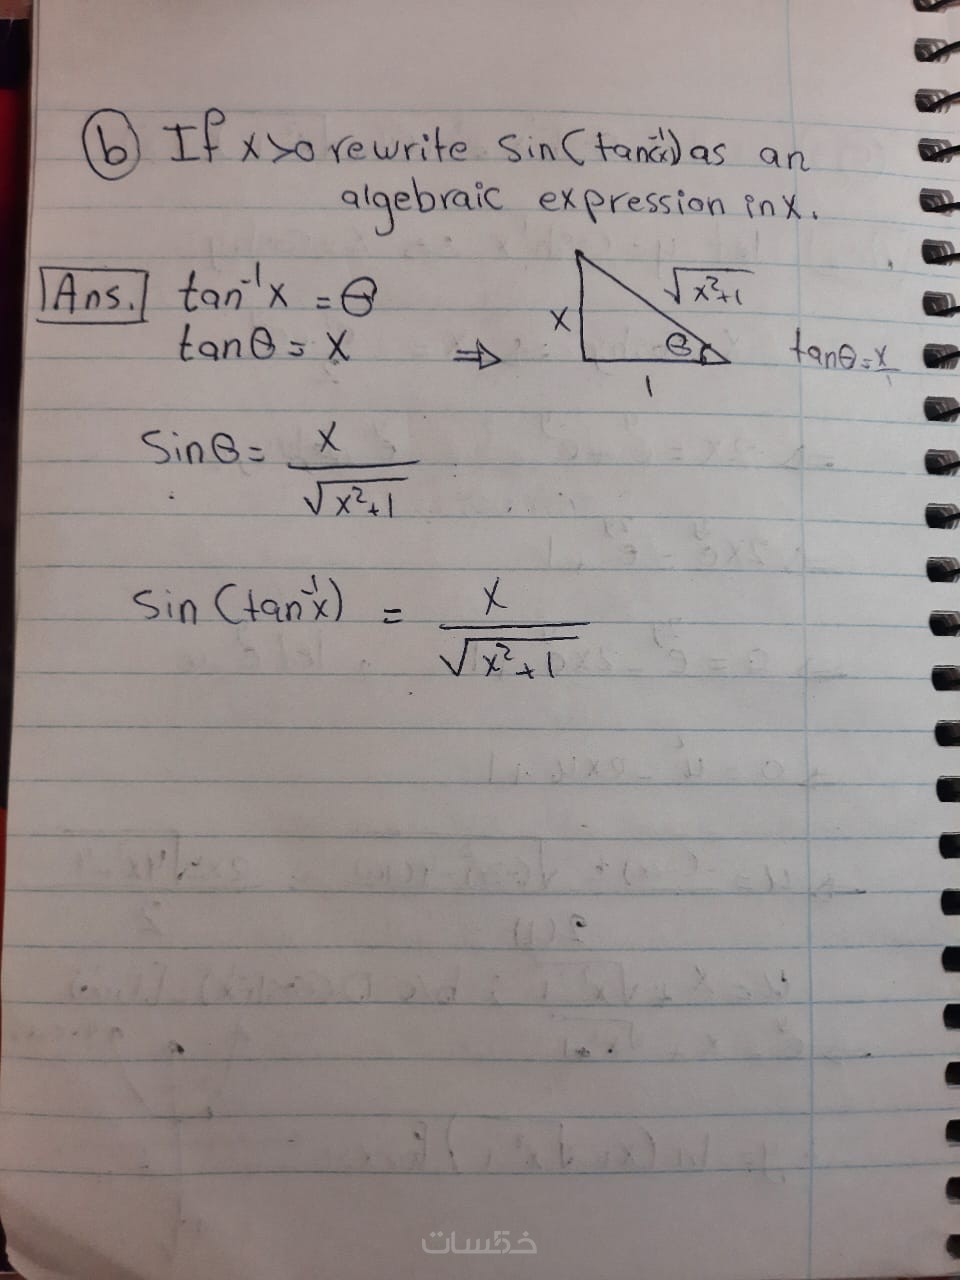 (b) If x>0 rewrite Sin(tan⁻¹(x)) as an
algebraic expression in x.
Ans. tan⁻¹x = θ
tanθ = x ⇒
x
√x²+1
θ
1
tanθ = x/1
Sinθ = x/√x²+1
Sin (tan⁻¹x) = x/√x²+1
خمسات